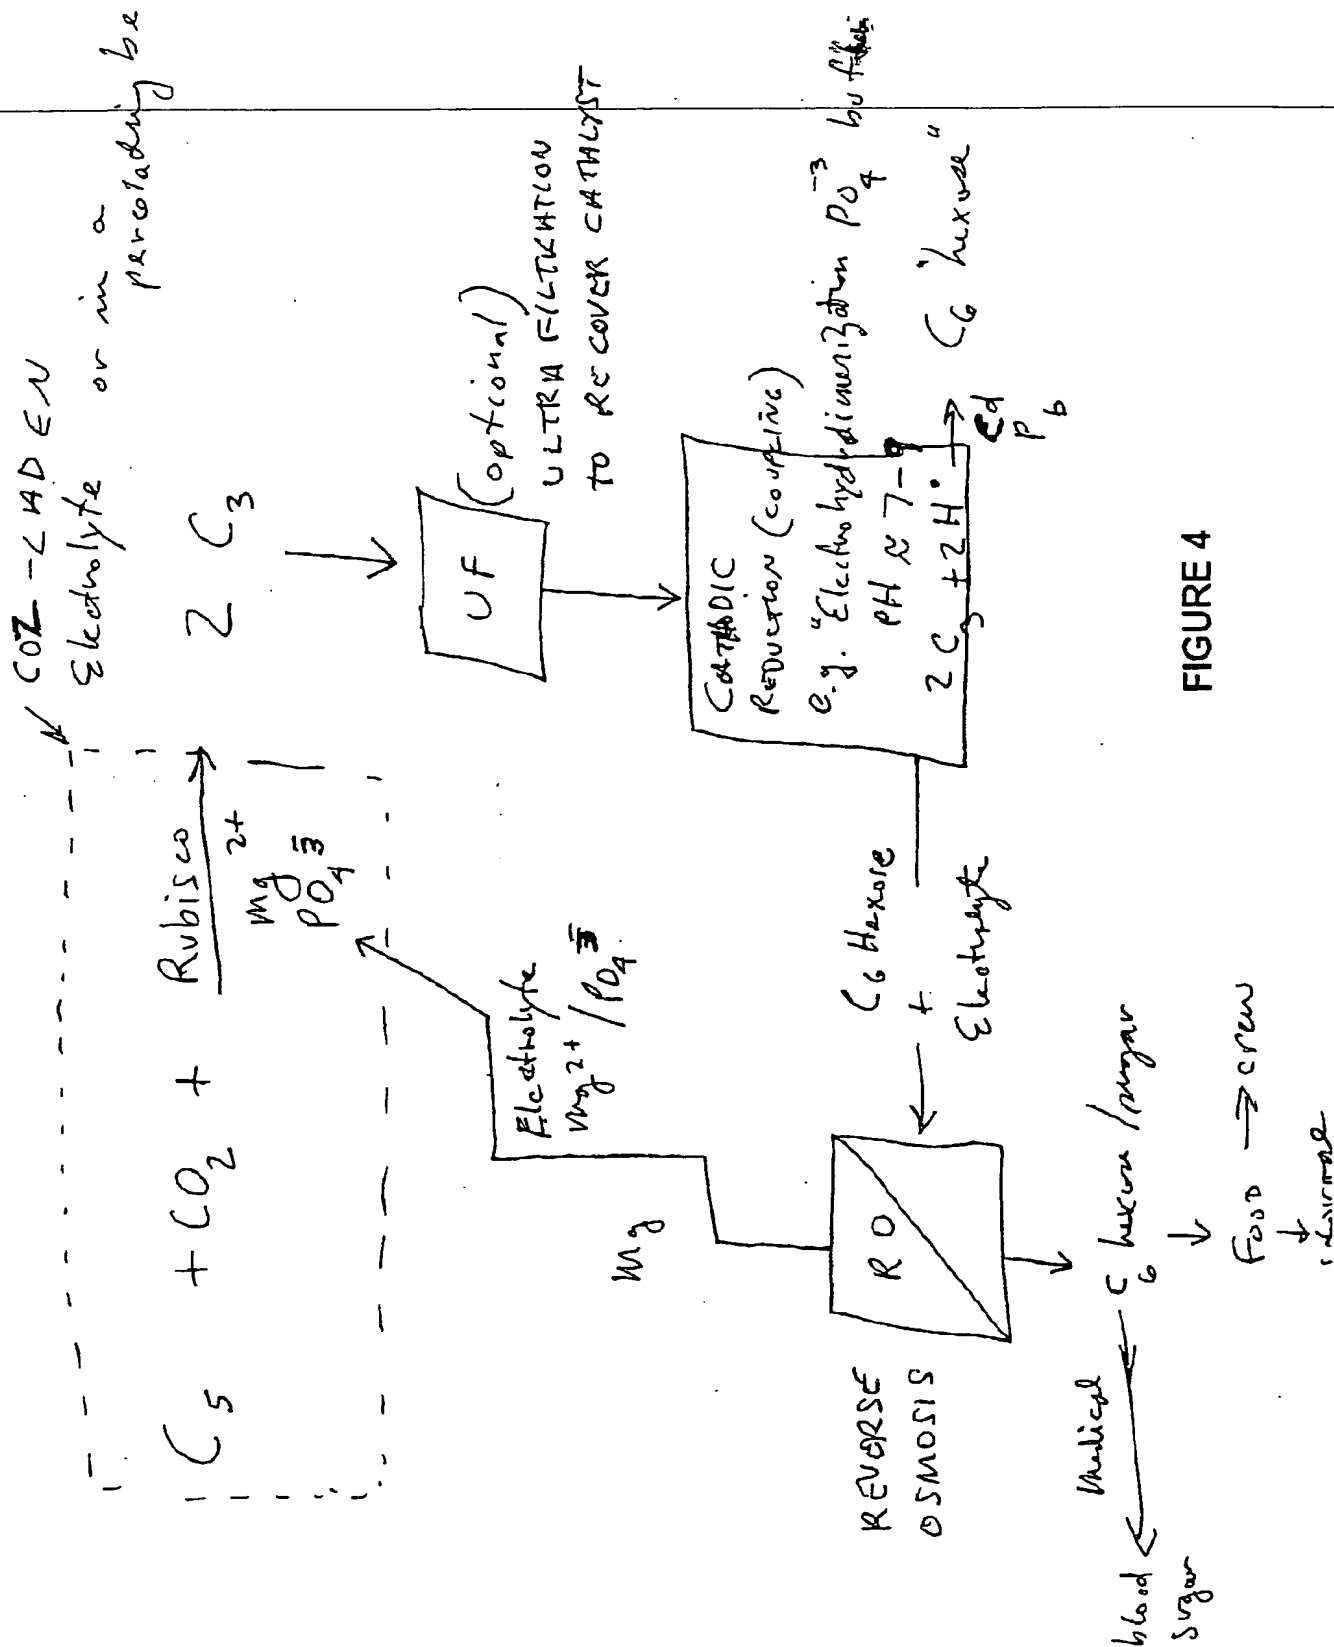 CO2-LADEN
Electrolyte or in a
percolading be
C5 + CO2 + Rubisco 2 C3
Mg2+
PO4 3-
UF
(optional)
ULTRA FILTRATION
TO RECOVER CATALYST
CATHODIC
REDUCTION (COUPLING)
e.g. "Electrohydrodimerization PO4 -3
PH ≈ 7-
2 C3 + 2H• C6 "hexose"
Cd
Pb
C6 Hexose
+
Electrolyte
Electrolyte
Mg2+/PO4 3-
Mg
RO
REVERSE
OSMOSIS
C6 hexose/sugar
Medical
blood
sugar
FOOD → crew
FIGURE 4